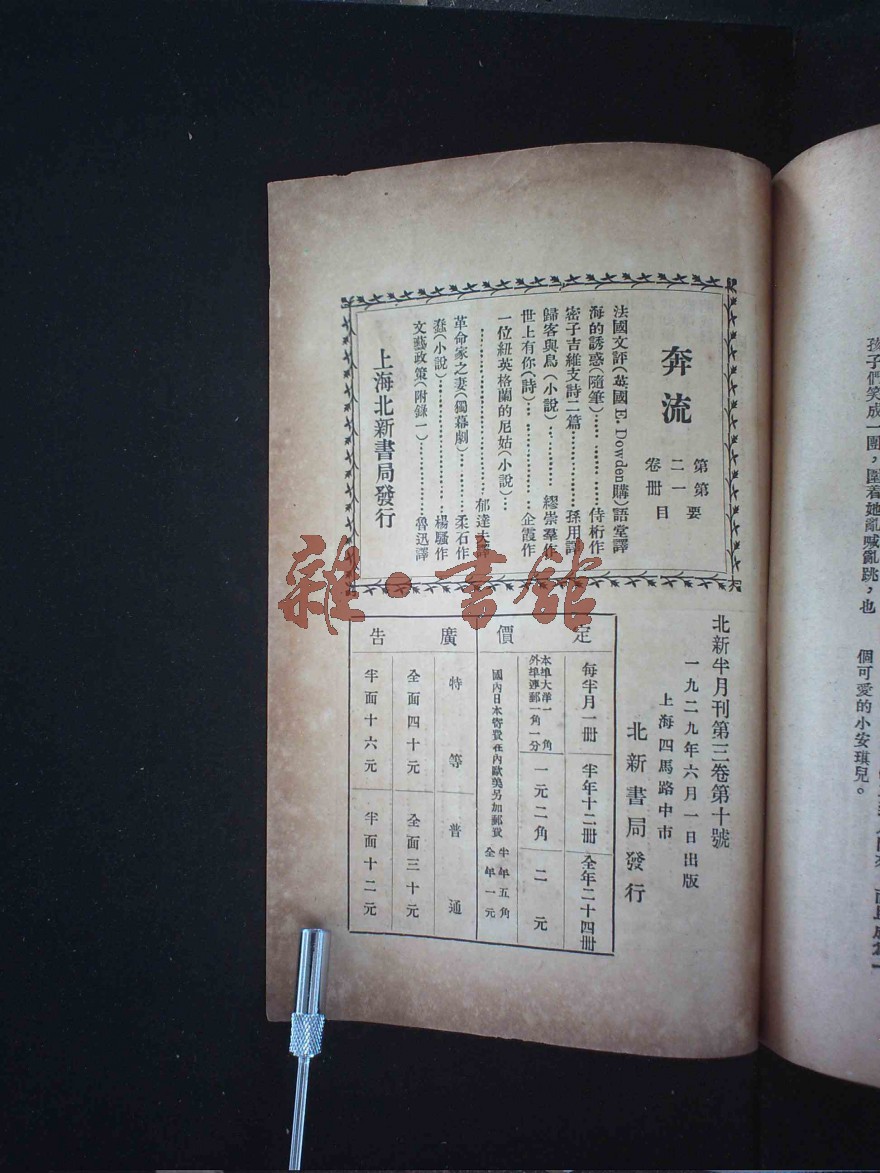 奔流
第二卷
第一冊
要目
法國文評(英國E. Dowden購)語堂譯
海的誘惑(隨筆)……………………侍桁作
密子吉維支詩二篇……………………孫用譯
歸客與鳥(小說)……………………繆崇羣作
世上有你(詩)……………………企霞作
一位紐英格蘭的尼姑(小說)…
……………………郁達夫譯
革命家之妻(獨幕劇)……………柔石作
蠢(小說)……………………楊騷作
文藝政策(附錄一)……………魯迅譯
上海北新書局發行
北新半月刊第三卷第十號
一九二九年六月一日出版
上海四馬路中市
北新書局發行
定價
每半月一冊
半年十二冊
全年二十四冊
本埠大洋一角
外埠連郵一角一分
一元二角
二元
國內日本寄費在內歐美另加郵費
半年五角
全年一元
廣告
特等
普通
全面四十元
全面三十元
半面十六元
半面十二元
孩子們笑成一團，圍着她亂喊亂跳，也
個可愛的小安琪兒。
雜·書館